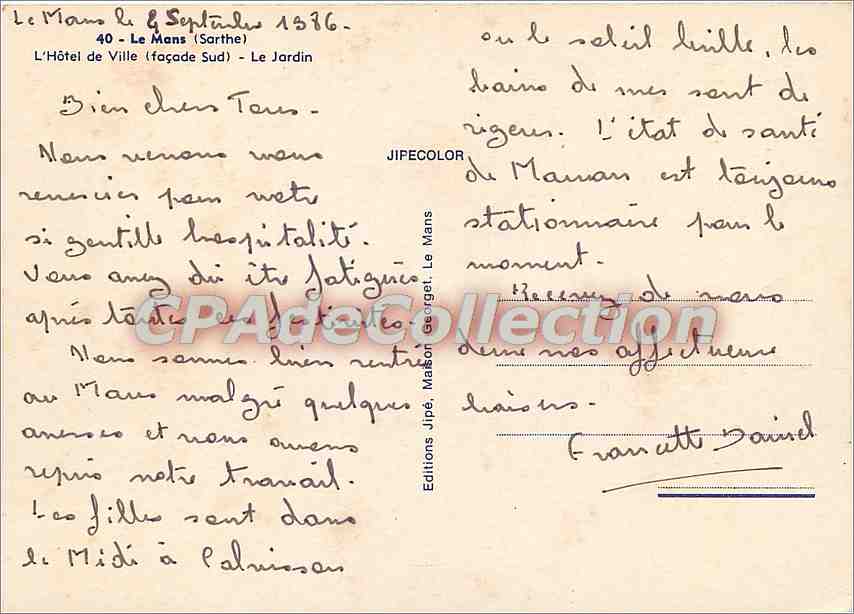 Le Mans le 5 Septembre 1986.
40 - Le Mans (Sarthe)
L'Hôtel de Ville (façade Sud) - Le Jardin
Bien chers Tous.
Nous venons vous
remercier pour votre
si gentille hospitalité.
Vous avez dû être fatiguées
après toutes ces festivités.
Nous sommes bien rentrés
au Mans malgré quelques
averses et nous avons
repris notre travail.
Les filles sont dans
le Midi à Calvisson
JIPECOLOR
Editions Jipé, Maison Georget. Le Mans
ou le soleil brille, les
bains de mer sont de
rigueur. L'état de santé
de Maman est toujours
stationnaire pour le
moment.
Recevez de nous
deux nos affectueux
baisers.
Francette Daniel
CPAdeCollection